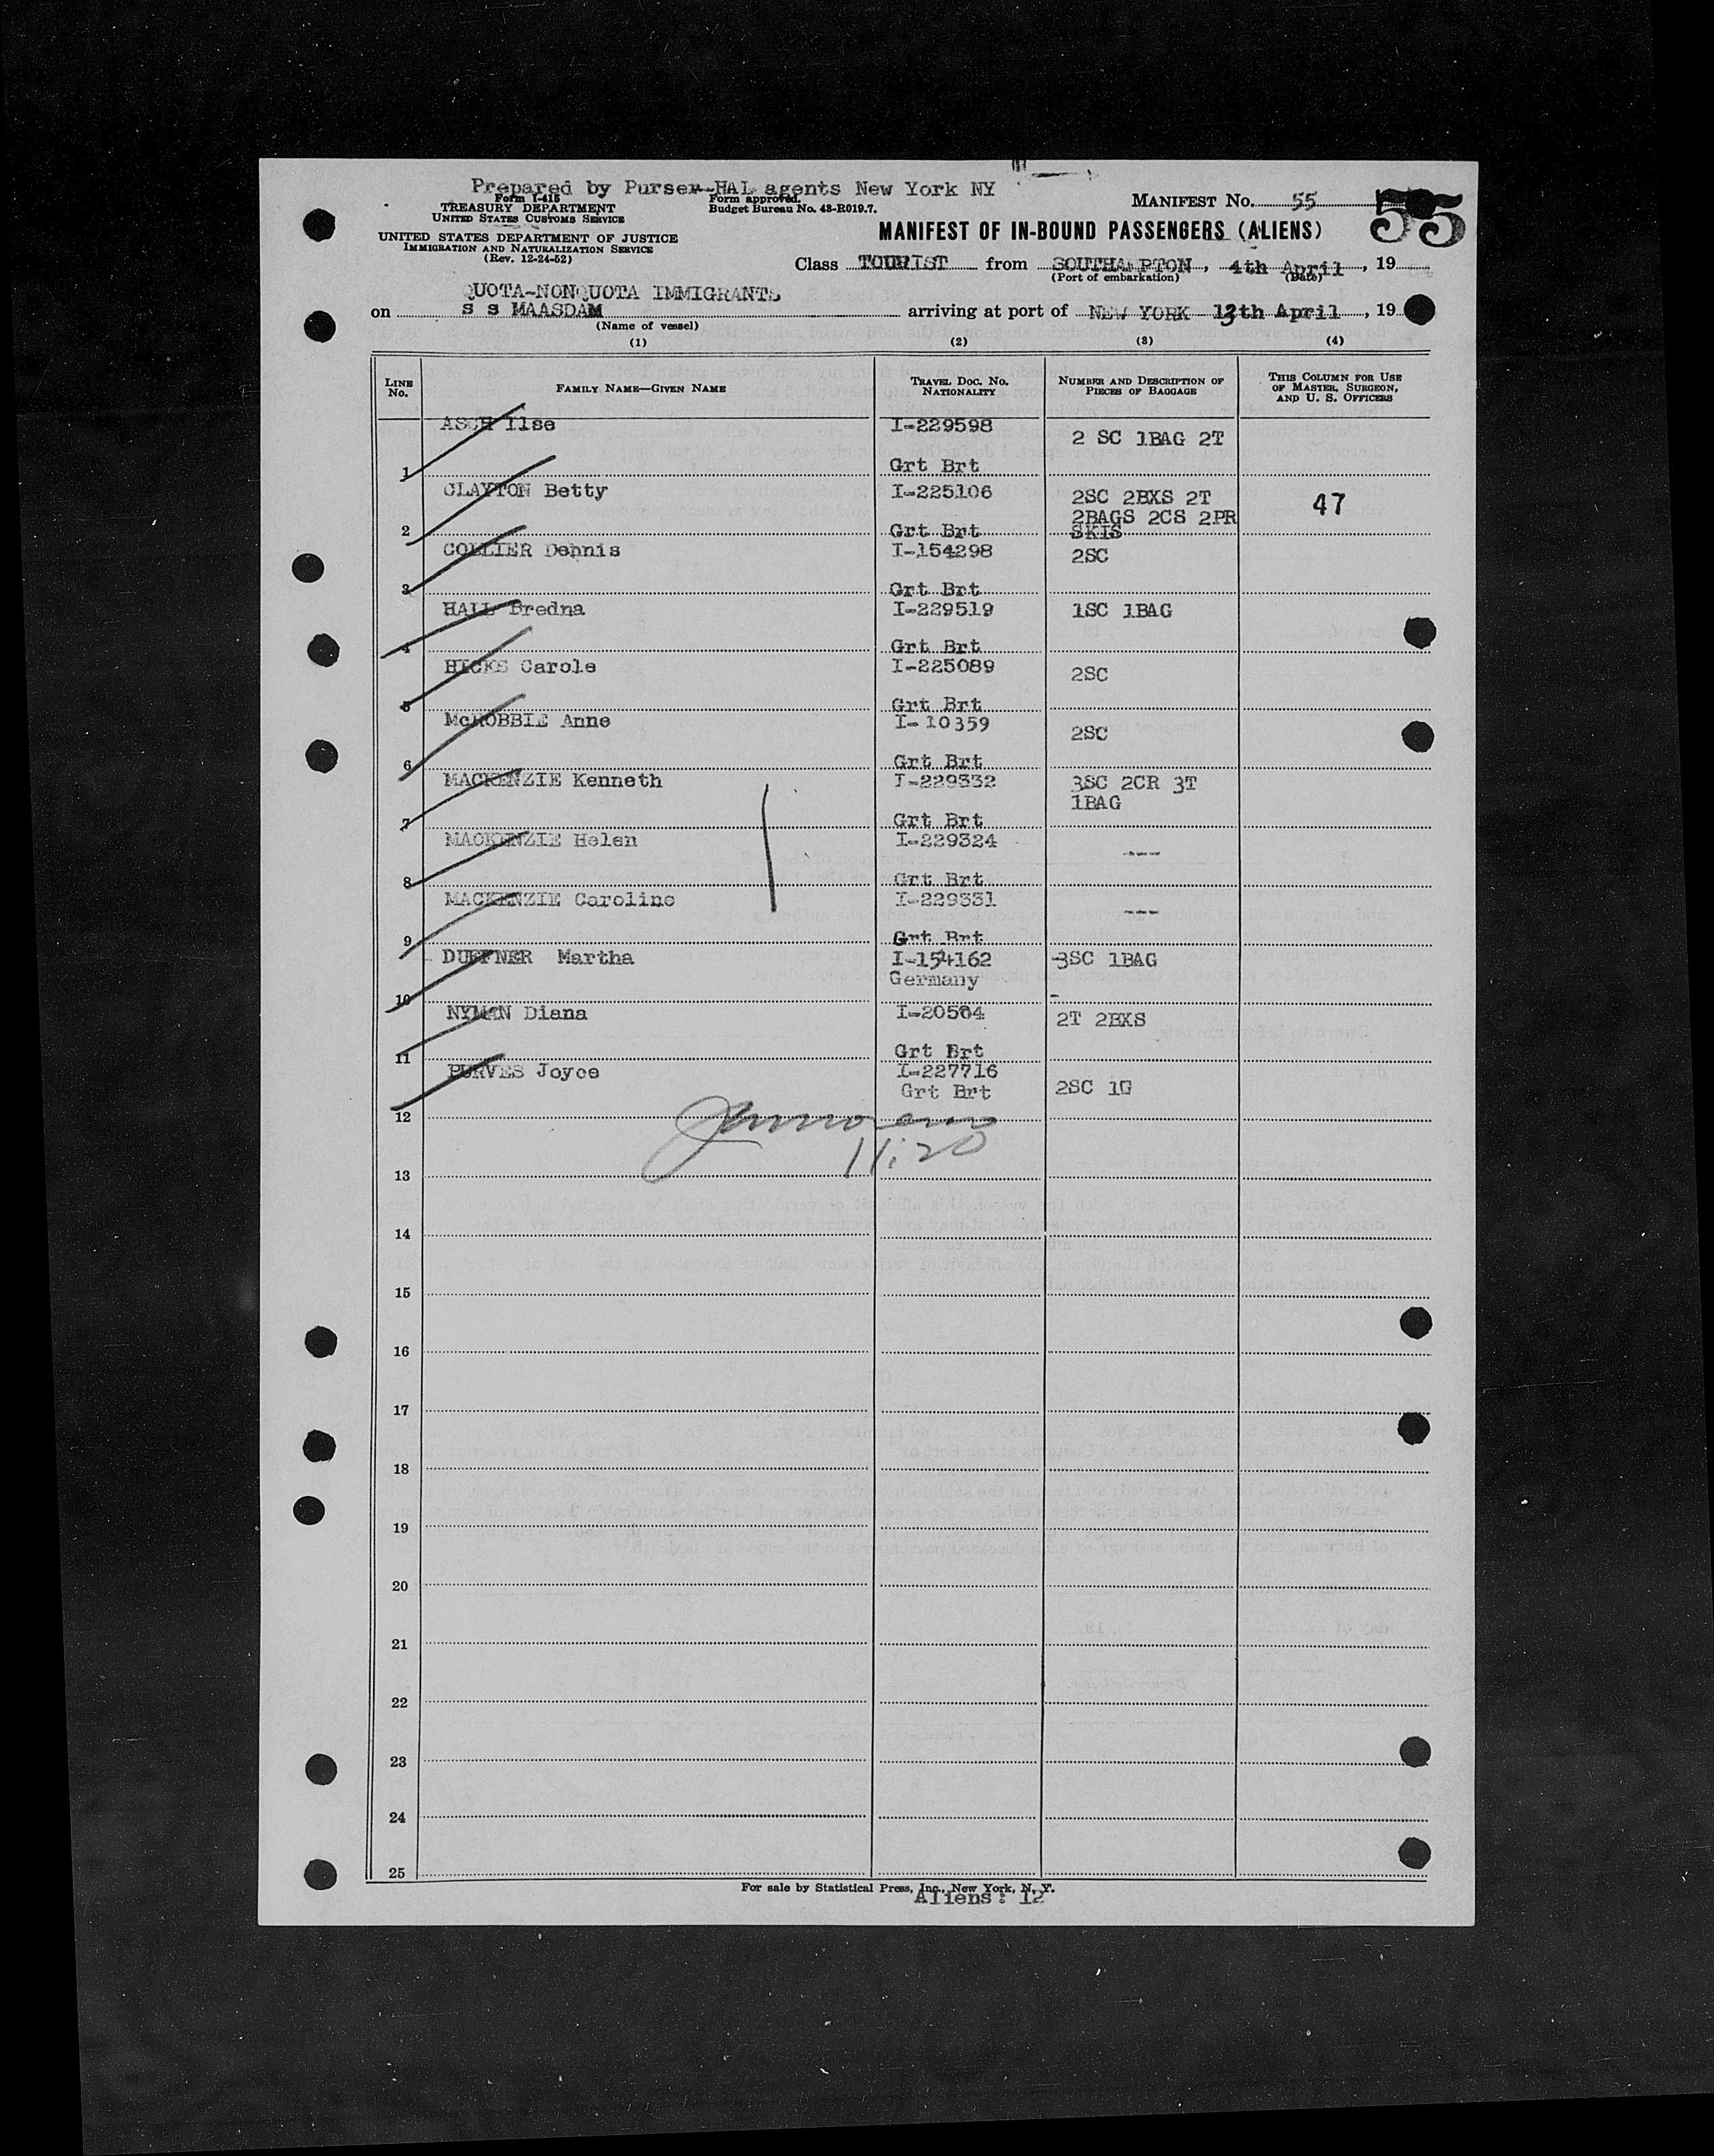 Prepared by Purser-HAL agents New York NY
Form I-415
TREASURY DEPARTMENT
UNITED STATES CUSTOMS SERVICE
UNITED STATES DEPARTMENT OF JUSTICE
IMMIGRATION AND NATURALIZATION SERVICE
(Rev. 12-24-52)
Form approved.
Budget Bureau No. 43-R019.7.
MANIFEST No. 55
55
MANIFEST OF IN-BOUND PASSENGERS (ALIENS)
Class TOURIST from SOUTHAMPTON, 4th April, 19
(Port of embarkation) (Date)
QUOTA-NONQUOTA IMMIGRANTS
on S S MAASDAM arriving at port of NEW YORK 13th April, 19
(Name of vessel)
(1) (2) (3) (4)
LINE No. FAMILY NAME—GIVEN NAME TRAVEL DOC. No. NATIONALITY NUMBER AND DESCRIPTION OF PIECES OF BAGGAGE THIS COLUMN FOR USE OF MASTER, SURGEON, AND U. S. OFFICERS
ASCH Ilse I-229598 2 SC 1BAG 2T
1 Grt Brt
CLAYTON Betty I-225106 2SC 2BXS 2T 47
2BAGS 2CS 2PR
2 Grt Brt SKIS
COLLIER Dennis I-154298 2SC
3 Grt Brt
HALL Bredna I-229519 1SC 1BAG
4 Grt Brt
HICKS Carole I-225089 2SC
5 Grt Brt
McROBBIE Anne I-10359 2SC
6 Grt Brt
MACKENZIE Kenneth I-229332 3SC 2CR 3T
1BAG
7 Grt Brt
MACKENZIE Helen I-229324 ---
8 Grt Brt
MACKENZIE Caroline I-229331 ---
9 Grt Brt
DUFFNER Martha I-154162 3SC 1BAG
Germany
10
NYMAN Diana I-20564 2T 2BXS
11 Grt Brt
PURVES Joyce I-227716
Grt Brt 2SC 1G
12
11:20
13
14
15
16
17
18
19
20
21
22
23
24
25
For sale by Statistical Press, Inc., New York, N. Y.
Aliens: 12